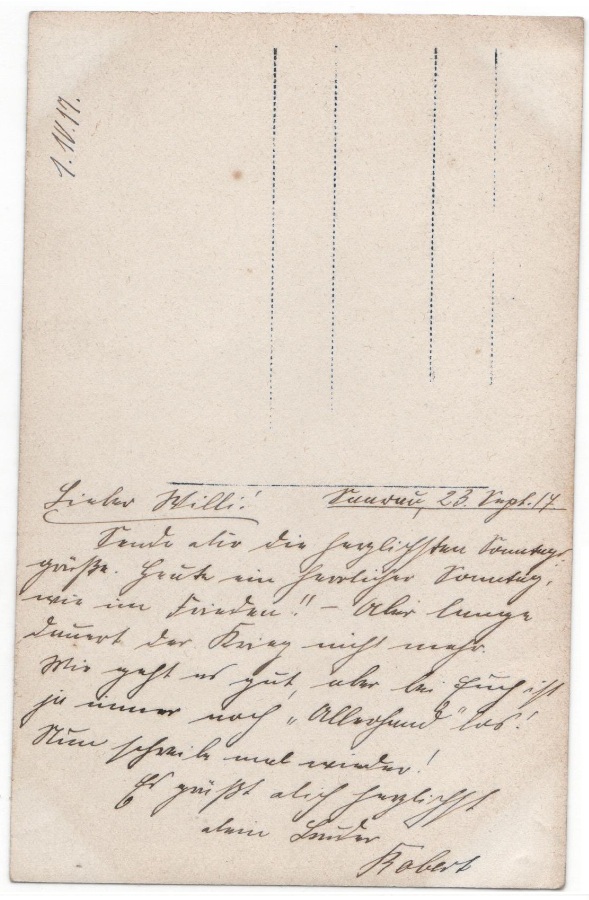 1. IV. 17.
Lieber Willi! Saarau, 23. Sept. 17
Sende dir die herzlichsten Sonntags-
grüße. Heute ein herrlicher Sonntag,
wie im Frieden!! – Aber lange
dauert der Krieg nicht mehr.
Mir geht es gut, aber bei Euch ist
ja immer noch „Allerhand" los!
Nun schreibe mal wieder!
Es grüßt dich herzlichst
dein Bruder
Robert